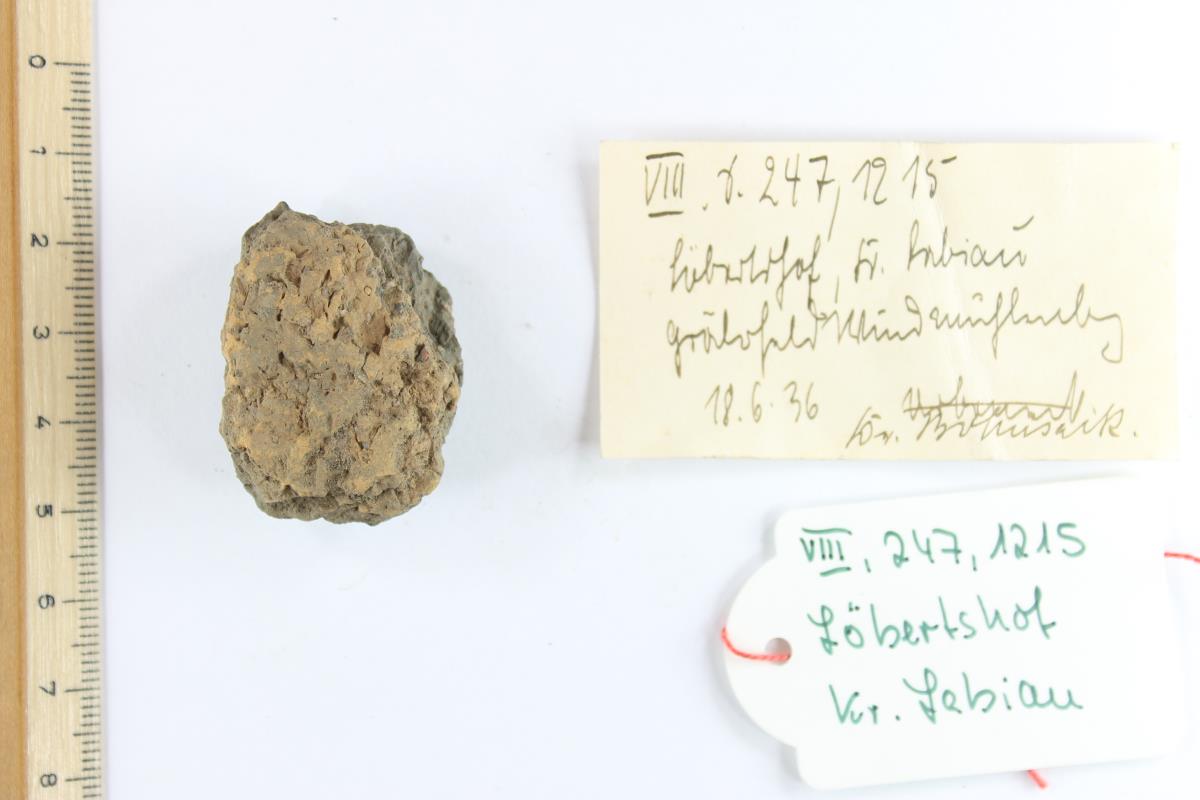 0
1
2
3
4
5
6
7
8
VIII. d. 247, 1215
Löbertshof, Kr. Labiau
Gräberfeld Windmühlenberg
18.6.36
Dr. Bohnsack.
VIII, 247, 1215
Löbertshof
Kr. Labiau